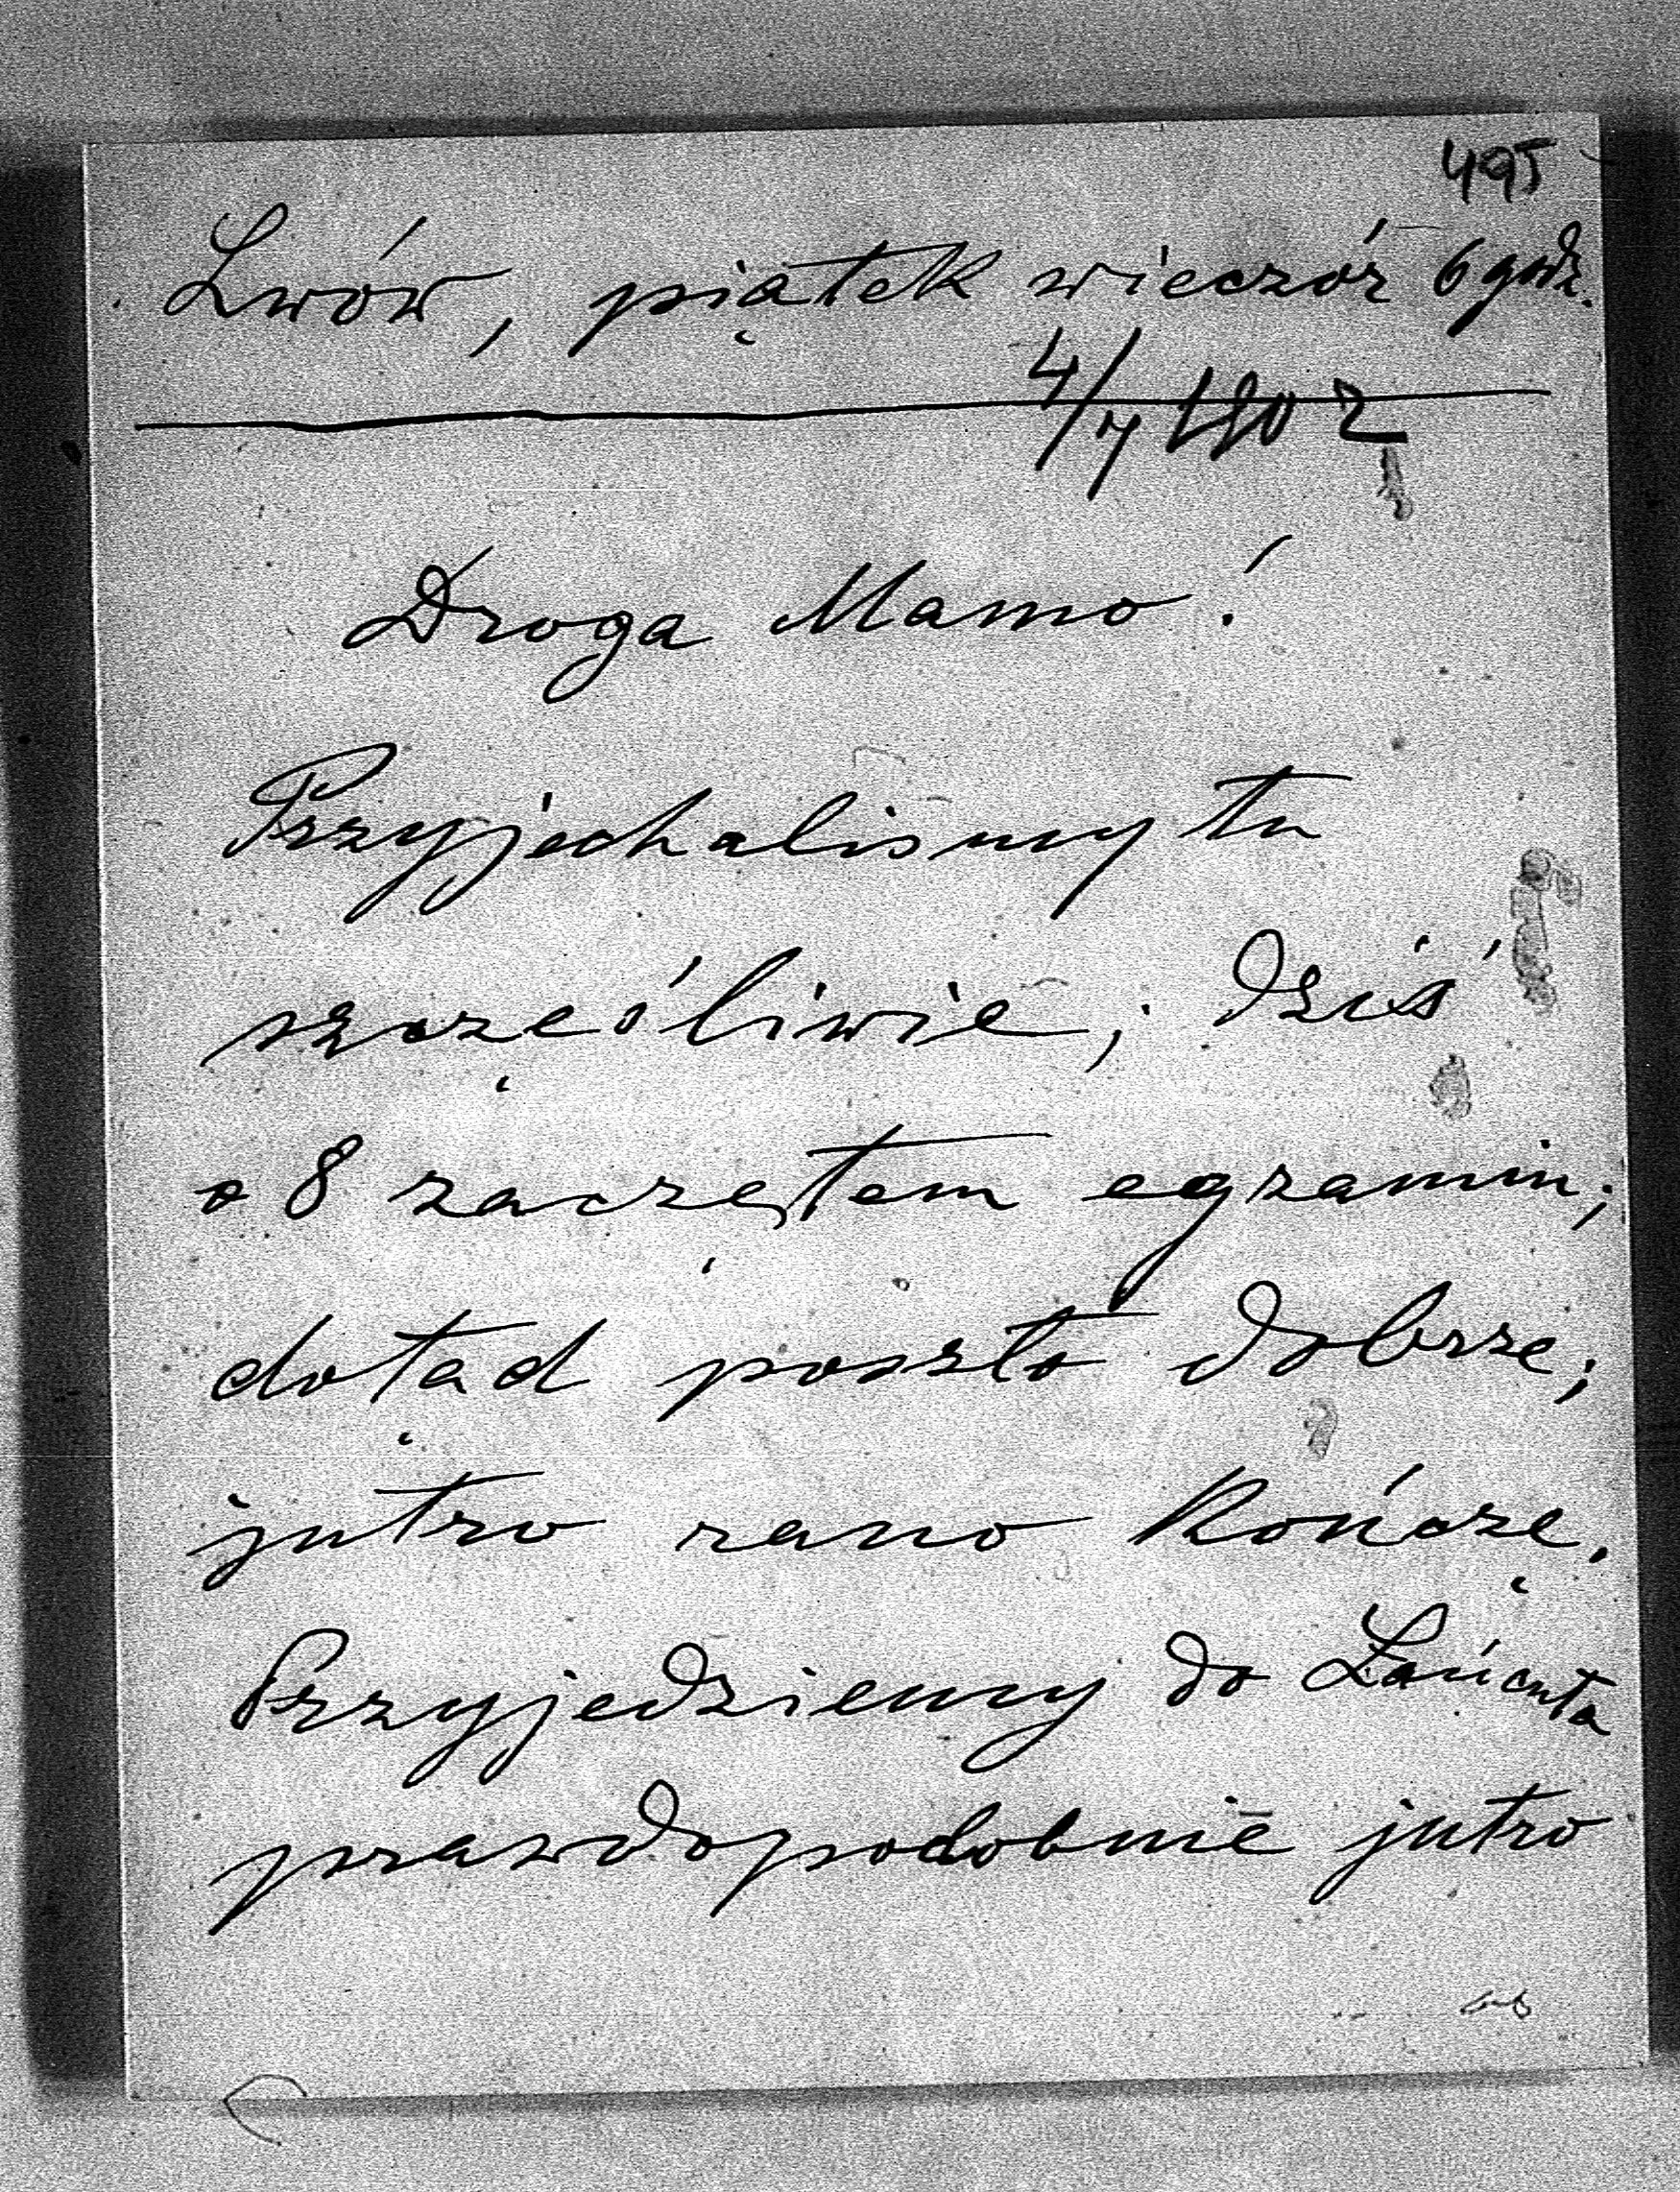 495
Lwów, piątek wieczór 6 godz.
4/7 1902
Droga Mamo!
Przyjechalismy tu
szczęśliwie; dziś
o 8 zacząłem egzamin;
dotąd poszło dobrze;
jutro rano kończę.
Przyjedziemy do Łańcuta
prawdopodobnie jutro